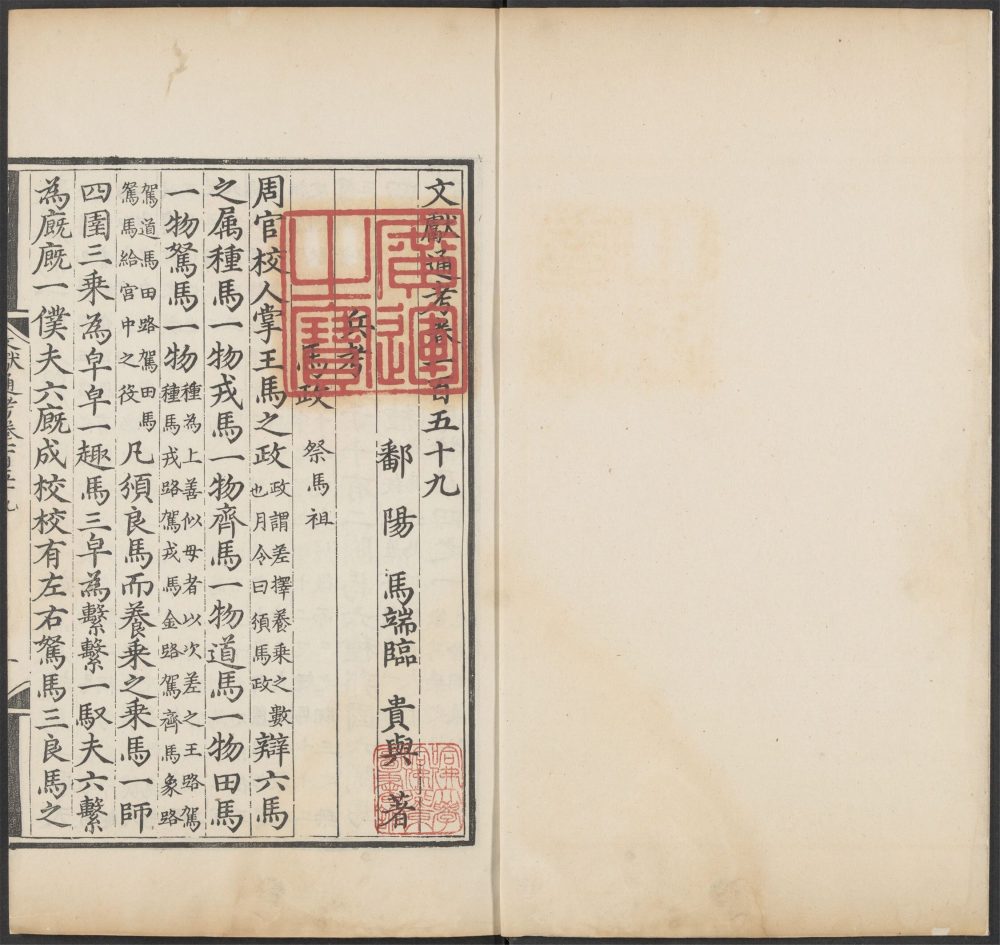 文獻通考卷一百五十九
鄱陽馬端臨貴與著
兵考
馬政
祭馬祖
周官校人掌王馬之政政謂差擇養乘之數也月令曰頒馬政辯六馬
之属種馬一物戎馬一物齊馬一物道馬一物田馬
一物駑馬一物種為上善似母者以次差之王路駕種馬戎路駕戎馬金路駕齊馬象路
駕道馬田路駕田馬駑馬給宮中之役凡頒良馬而養乘之乘馬一師
四圉三乘為皁皁一趣馬三皁為繫繫一馭夫六繫
為廐廐一僕夫六廐成校校有左右駑馬三良馬之
廣運之寶